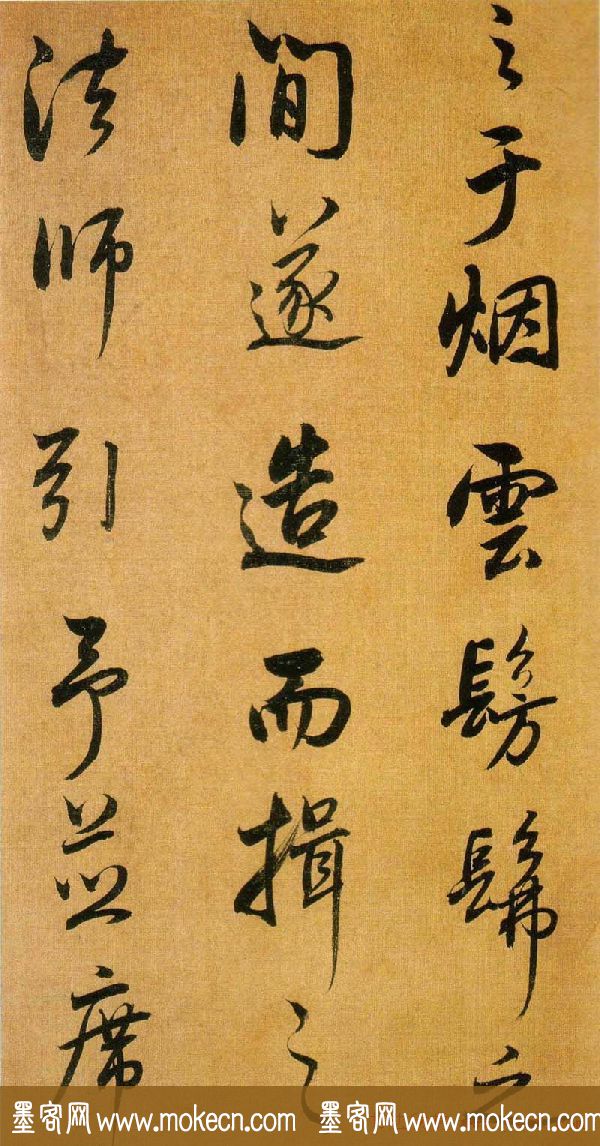 之于烟雲髣髴之
間遂造而揖之
法师引予並席
墨客网 www.mokecn.com 墨客网 www.mokecn.com